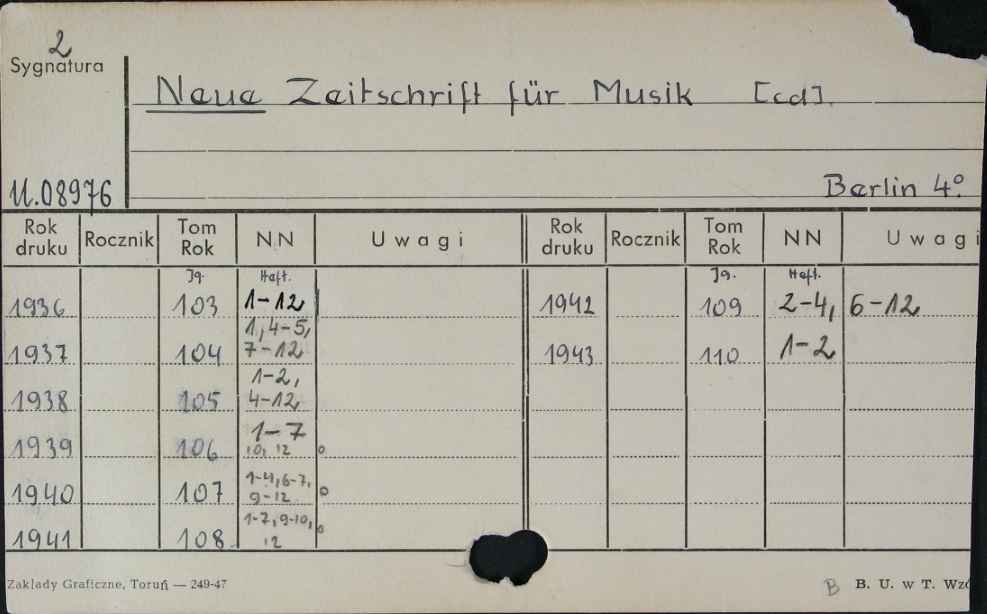 2
Sygnatura
Neue Zeitschrift für Musik [cd].
U.08976
Berlin 4°
Rok druku Rocznik Tom Rok NN Uwagi Rok druku Rocznik Tom Rok NN Uwagi
Jg. Heft. Jg. Heft.
1936 103 1-12 1942 109 2-4, 6-12
1937 104 1, 4-5, 7-12 1943 110 1-2
1938 105 1-2, 4-12
1939 106 1-7 10, 12 o
1940 107 1-4, 6-7, 9-12 o
1941 108 1-7, 9-10, 12 o
Zakłady Graficzne, Toruń — 249-47
B B. U. w T.